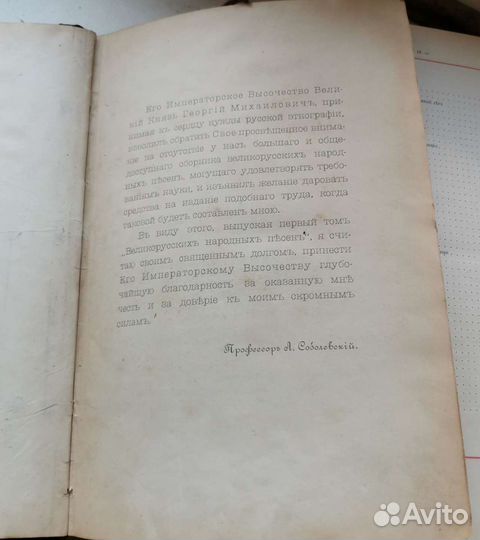 Его Императорское Высочество Вели-
кій Князь Георгій Михаиловичъ, при-
нимая къ сердцу нужды русской этнографіи,
изволилъ обратить Свое просвѣщенное внима-
ніе на отсутствіе у насъ большаго и обще-
доступнаго сборника великорусскихъ народ-
ныхъ пѣсенъ, могущаго удовлетворять требо-
ваніямъ науки, и изъявилъ желаніе даровать
средства на изданіе подобнаго труда, когда
таковой будетъ составленъ мною.
Въ виду этого, выпуская первый томъ
„Великорусскихъ народныхъ пѣсенъ“, я счи-
таю своимъ священнымъ долгомъ, принести
Его Императорскому Высочеству глубо-
чайшую благодарность за оказанную мнѣ
честь и за довѣріе къ моимъ скромнымъ
силамъ.
Профессоръ А. Соболевскій.
Avito